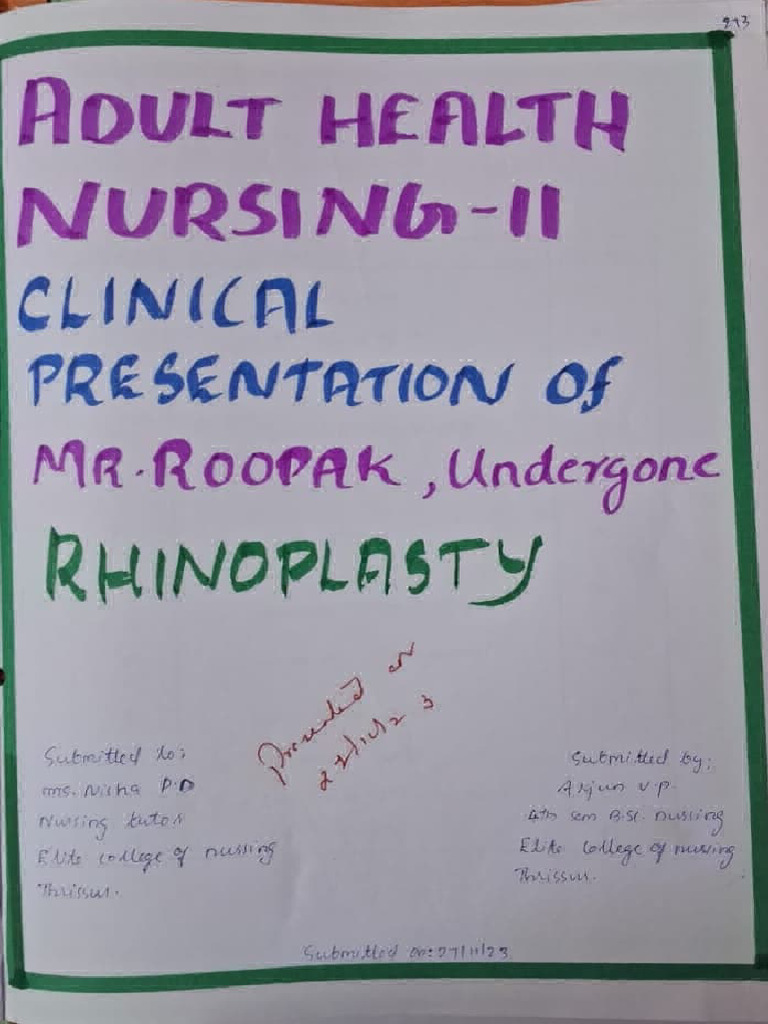 ADULT HEALTH
NURSING-II
CLINICAL
PRESENTATION Of
MR.ROOPAK, Undergone
RHINOPLASTY
Presented on
Submitted to:
Ms. Nisha P.D
Nursing tutor
Elite college of nursing
Thrissur.
Submitted by:
Arjun V.P.
sem B.Sc. nursing
Elite College of nursing
Thrissur.
Submitted on: 27/11/23